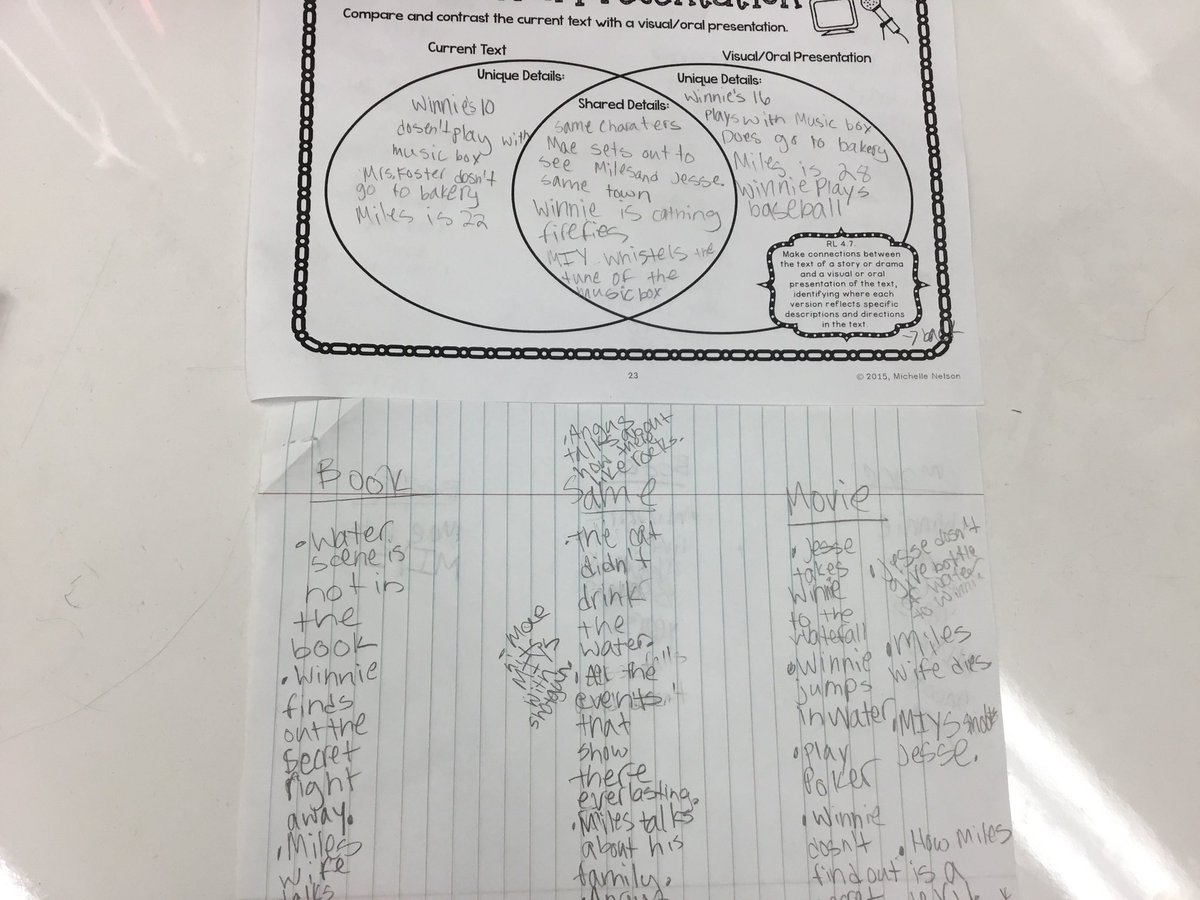 Compare and contrast the current text with a visual/oral presentation.
Current Text
Unique Details:
Winnie's 10
dosen't play with
music box
Mrs. Foster dosn't
go to bakery
Miles is 22
Shared Details:
same charaters
Mae sets out to
see Miles and Jesse.
same town
Winnie is catning
firefies
MIY whistels the
tune of the
music box
Visual/Oral Presentation
Unique Details:
Winnie's 16
plays with Music box
Does go to bakery
Miles is 28
Winnie Plays
baseball
RL 4.7
Make connections between
the text of a story or drama
and a visual or oral
presentation of the text,
identifying where each
version reflects specific
descriptions and directions
in the text.
→ back
23
© 2015, Michelle Nelson
Book
• Water
scene is
not in
the
book
• Winnie
finds
out the
secret
right
away.
• Miles
wife
talks
• Angus
talks about
how there
like rocks.
Same
• the cat
didn't
drink
the
water.
• All the
events
that
show
there
everlasting.
• Miles talks
about his
family.
• Angus
Movie
• Jesse
takes
Winnie
to the
watefall
• Winnie
jumps
in water
• play
Poker
• Winnie
dosn't
find out
• Jesse dosn't
give bottle
of water
to Winnie
• Miles
wife dies
• MIYS
Jesse.
• How Miles
is a